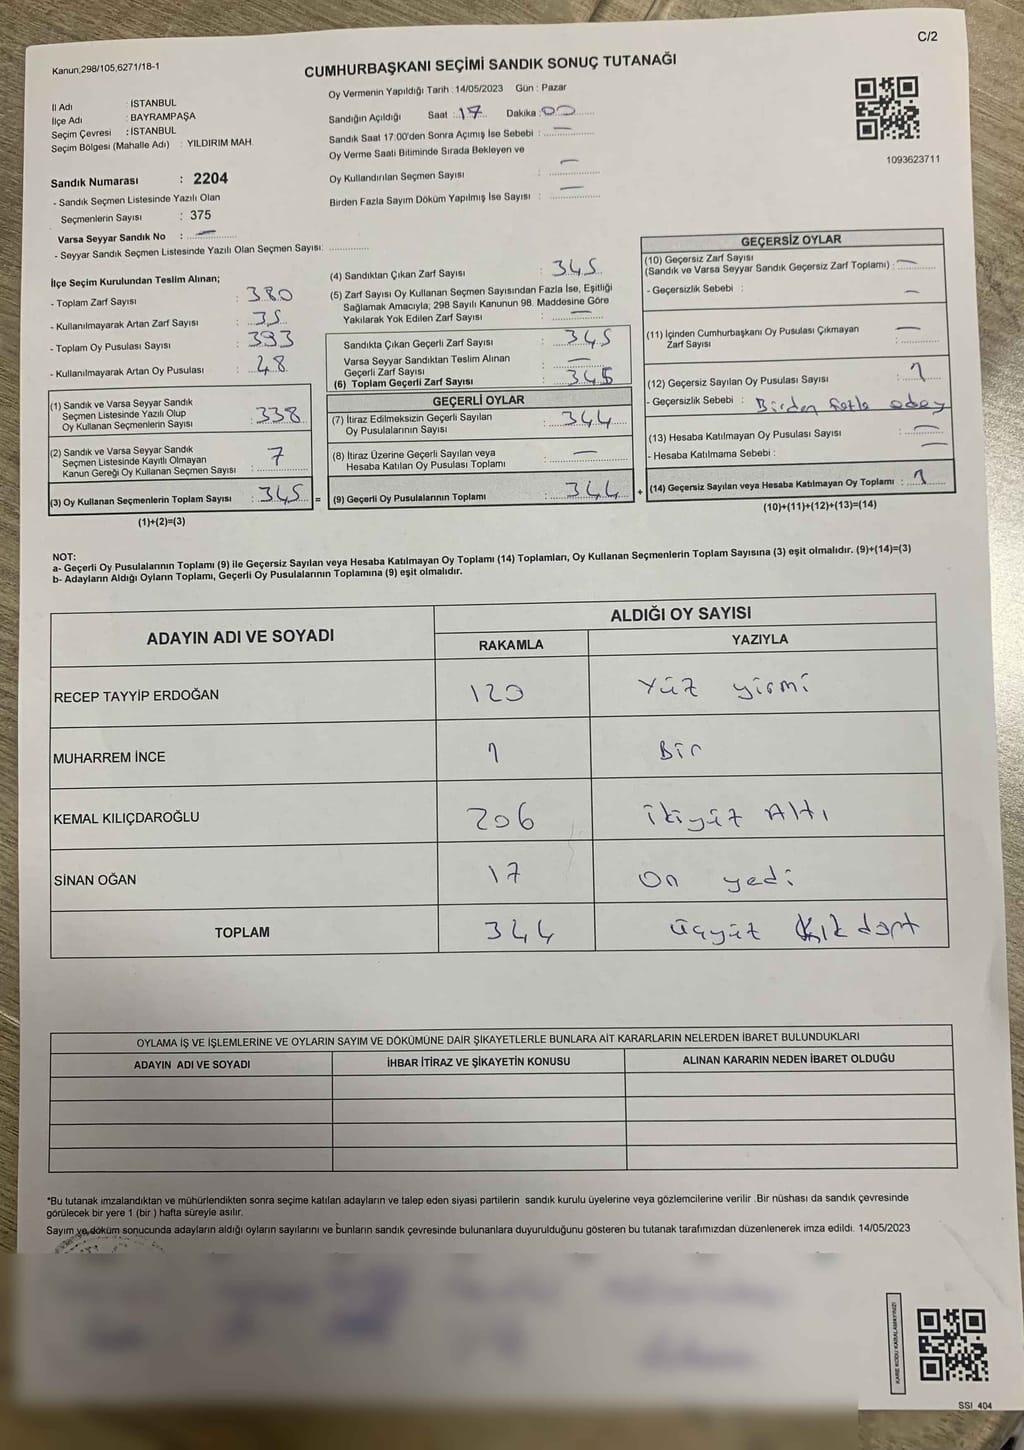 C/2
Kanun;298/105,6271/18-1
CUMHURBAŞKANI SEÇİMİ SANDIK SONUÇ TUTANAĞI
İl Adı : İSTANBUL
İlçe Adı : BAYRAMPAŞA
Seçim Çevresi : İSTANBUL
Seçim Bölgesi (Mahalle Adı) : YILDIRIM MAH.
Oy Vermenin Yapıldığı Tarih : 14/05/2023 Gün : Pazar
Sandığın Açıldığı Saat : 17 Dakika : 00
Sandık Saat 17:00'den Sonra Açımış İse Sebebi : —
Oy Verme Saati Bitiminde Sırada Bekleyen ve
Oy Kullandırılan Seçmen Sayısı : —
Birden Fazla Sayım Döküm Yapılmış İse Sayısı : —
1093623711
Sandık Numarası : 2204
- Sandık Seçmen Listesinde Yazılı Olan
Seçmenlerin Sayısı : 375
Varsa Seyyar Sandık No : —
- Seyyar Sandık Seçmen Listesinde Yazılı Olan Seçmen Sayısı: ..............
İlçe Seçim Kurulundan Teslim Alınan;
- Toplam Zarf Sayısı : 380
- Kullanılmayarak Artan Zarf Sayısı : 35
- Toplam Oy Pusulası Sayısı : 393
- Kullanılmayarak Artan Oy Pusulası : 48
(1) Sandık ve Varsa Seyyar Sandık
Seçmen Listesinde Yazılı Olup
Oy Kullanan Seçmenlerin Sayısı : 338
(2) Sandık ve Varsa Seyyar Sandık
Seçmen Listesinde Kayıtlı Olmayan
Kanun Gereği Oy Kullanan Seçmen Sayısı : 7
(3) Oy Kullanan Seçmenlerin Toplam Sayısı : 345 =
(1)+(2)=(3)
(4) Sandıktan Çıkan Zarf Sayısı : 345
(5) Zarf Sayısı Oy Kullanan Seçmen Sayısından Fazla İse, Eşitliği
Sağlamak Amacıyla; 298 Sayılı Kanunun 98. Maddesine Göre
Yakılarak Yok Edilen Zarf Sayısı : —
Sandıkta Çıkan Geçerli Zarf Sayısı : 345
Varsa Seyyar Sandıktan Teslim Alınan
Geçerli Zarf Sayısı : —
(6) Toplam Geçerli Zarf Sayısı : 345
GEÇERLİ OYLAR
(7) İtiraz Edilmeksizin Geçerli Sayılan
Oy Pusulalarının Sayısı : 344
(8) İtiraz Üzerine Geçerli Sayılan veya
Hesaba Katılan Oy Pusulası Toplamı : —
(9) Geçerli Oy Pusulalarının Toplamı : 344 +
GEÇERSİZ OYLAR
(10) Geçersiz Zarf Sayısı
(Sandık ve Varsa Seyyar Sandık Geçersiz Zarf Toplamı) : —
- Geçersizlik Sebebi : —
(11) İçinden Cumhurbaşkanı Oy Pusulası Çıkmayan
Zarf Sayısı : —
(12) Geçersiz Sayılan Oy Pusulası Sayısı : 1
- Geçersizlik Sebebi : Birden fazla aday
(13) Hesaba Katılmayan Oy Pusulası Sayısı : —
- Hesaba Katılmama Sebebi : —
(14) Geçersiz Sayılan veya Hesaba Katılmayan Oy Toplamı : 1
(10)+(11)+(12)+(13)=(14)
NOT:
a- Geçerli Oy Pusulalarının Toplamı (9) ile Geçersiz Sayılan veya Hesaba Katılmayan Oy Toplamı (14) Toplamları, Oy Kullanan Seçmenlerin Toplam Sayısına (3) eşit olmalıdır. (9)+(14)=(3)
b- Adayların Aldığı Oyların Toplamı, Geçerli Oy Pusulalarının Toplamına (9) eşit olmalıdır.
ADAYIN ADI VE SOYADI
ALDIĞI OY SAYISI
RAKAMLA YAZIYLA
RECEP TAYYİP ERDOĞAN 120 Yüz yirmi
MUHARREM İNCE 1 Bir
KEMAL KILIÇDAROĞLU 206 ikiyüz Altı
SİNAN OĞAN 17 On yedi
TOPLAM 344 üçyüz Kırk dört
OYLAMA İŞ VE İŞLEMLERİNE VE OYLARIN SAYIM VE DÖKÜMÜNE DAİR ŞİKAYETLERLE BUNLARA AİT KARARLARIN NELERDEN İBARET BULUNDUKLARI
ADAYIN ADI VE SOYADI İHBAR İTİRAZ VE ŞİKAYETİN KONUSU ALINAN KARARIN NEDEN İBARET OLDUĞU
*Bu tutanak imzalandıktan ve mühürlendikten sonra seçime katılan adayların ve talep eden siyasi partilerin sandık kurulu üyelerine veya gözlemcilerine verilir .Bir nüshası da sandık çevresinde
görülecek bir yere 1 (bir ) hafta süreyle asılır.
Sayım ve döküm sonucunda adayların aldığı oyların sayılarını ve bunların sandık çevresinde bulunanlara duyurulduğunu gösteren bu tutanak tarafımızdan düzenlenerek imza edildi. 14/05/2023
KARE KODU KARALAMAYINIZ!
SSI_404